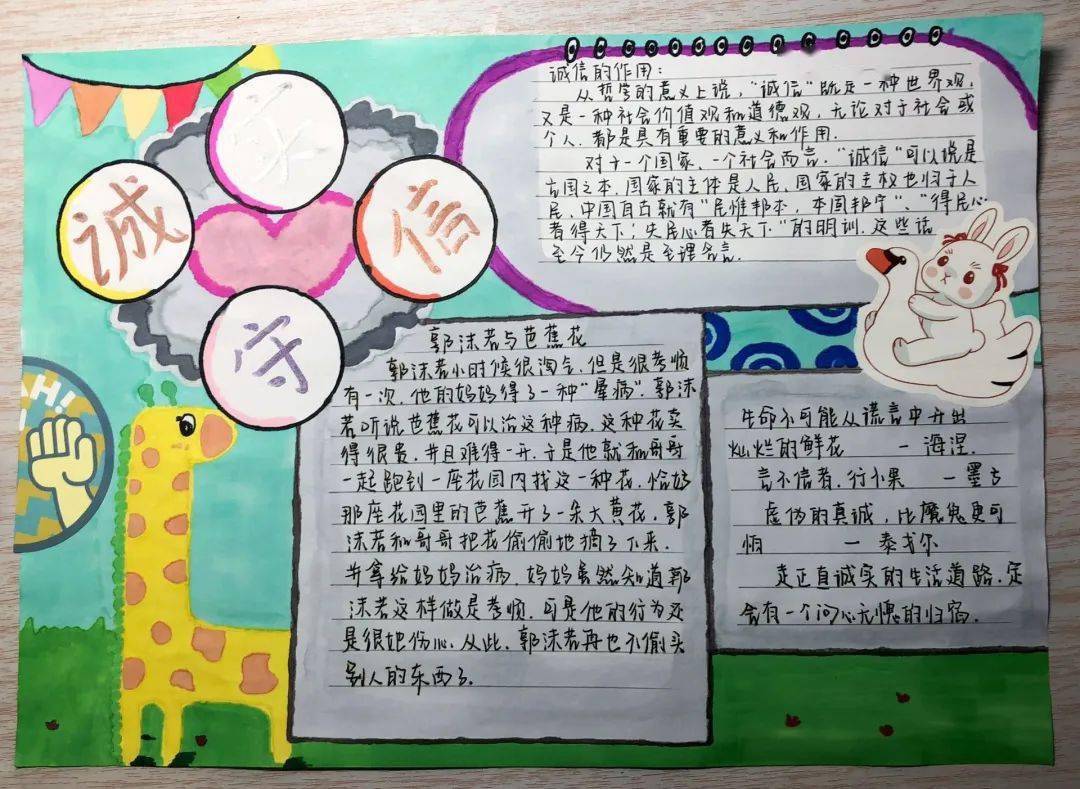 诚
实
守
信
H!
诚信的作用：
从哲学的意义上说，“诚信”既是一种世界观，
又是一种社会价值观和道德观，无论对于社会或
个人，都是具有重要的意义和作用.
对于一个国家、一个社会而言，“诚信”可以说是
立国之本，国家的主体是人民，国家的主权也归于人
民，中国自古就有“民惟邦本，本固邦宁”、“得民心
者得天下；失民心者失天下”的明训，这些话
至今仍然是至理名言.
郭沫若与芭蕉花
郭沫若小时候很淘气，但是很孝顺
有一次，他的妈妈得了一种“晕病”，郭沫
若听说芭蕉花可以治这种病，这种花卖
得很贵，并且难得一开，于是他就和哥哥
一起跑到一座花园内找这一种花，恰好
那座花园里的芭蕉开了一朵大黄花，郭
沫若和哥哥把花偷偷地摘了下来，
并拿给妈妈治病，妈妈虽然知道郭
沫若这样做是孝顺，可是他的行为还
是很她伤心，从此，郭沫若再也不偷
别人的东西了.
生命不可能从谎言中开出
灿烂的鲜花 — 海涅.
言不信者，行不果 — 墨子
虚伪的真诚，比魔鬼更可
怕 — 泰戈尔
走正直诚实的生活道路，定
会有一个问心无愧的归宿.